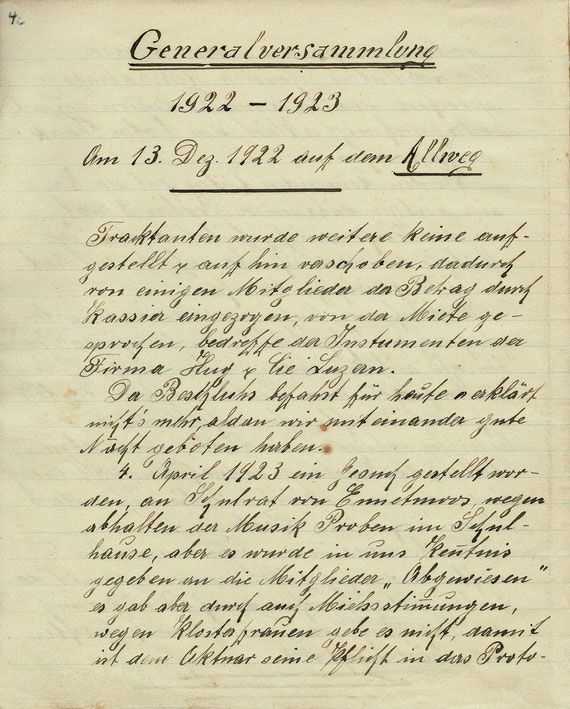 4.
Generalversammlung
1922 – 1923
Am 13. Dez. 1922 auf dem Allweg
Traktanten wurde weitere keine auf-
gestellt & auf hin verschoben, dadurch
von einigen Mitglieder der Betrag durch
Kassier eingezogen, von der Miete ge-
sprochen, betreffe der Instrumenten der
Firma Hug & Cie Luzern.
Der Beschluss befasst für heute erklärt
nicht's mehr, als dan wir miteinander gute
Nacht geboten haben.
4. April 1923 ein Gesuch gestellt wor-
den, an Schulrat von Ennetmoos wegen
abhalten der Musik Proben im Schul-
hause, aber es wurde in uns Kentnis
gegeben an die Mitglieder „Abgewiesen"
es gab aber durch auch Missstimungen,
wegen Klosterfrauen gebe es nicht, damit
ist dem Aktuar seine Pflicht in das Proto-